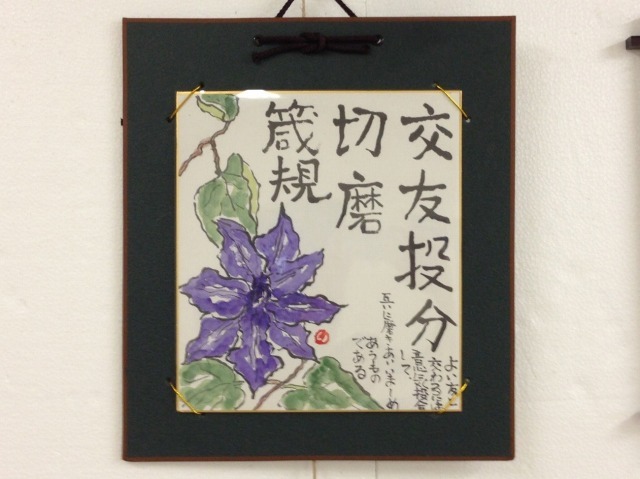 交友投分
切磨
箴規
よい友と
交わるには
意気投合
して、
互いに磨きあいいましめ
あうもの
である